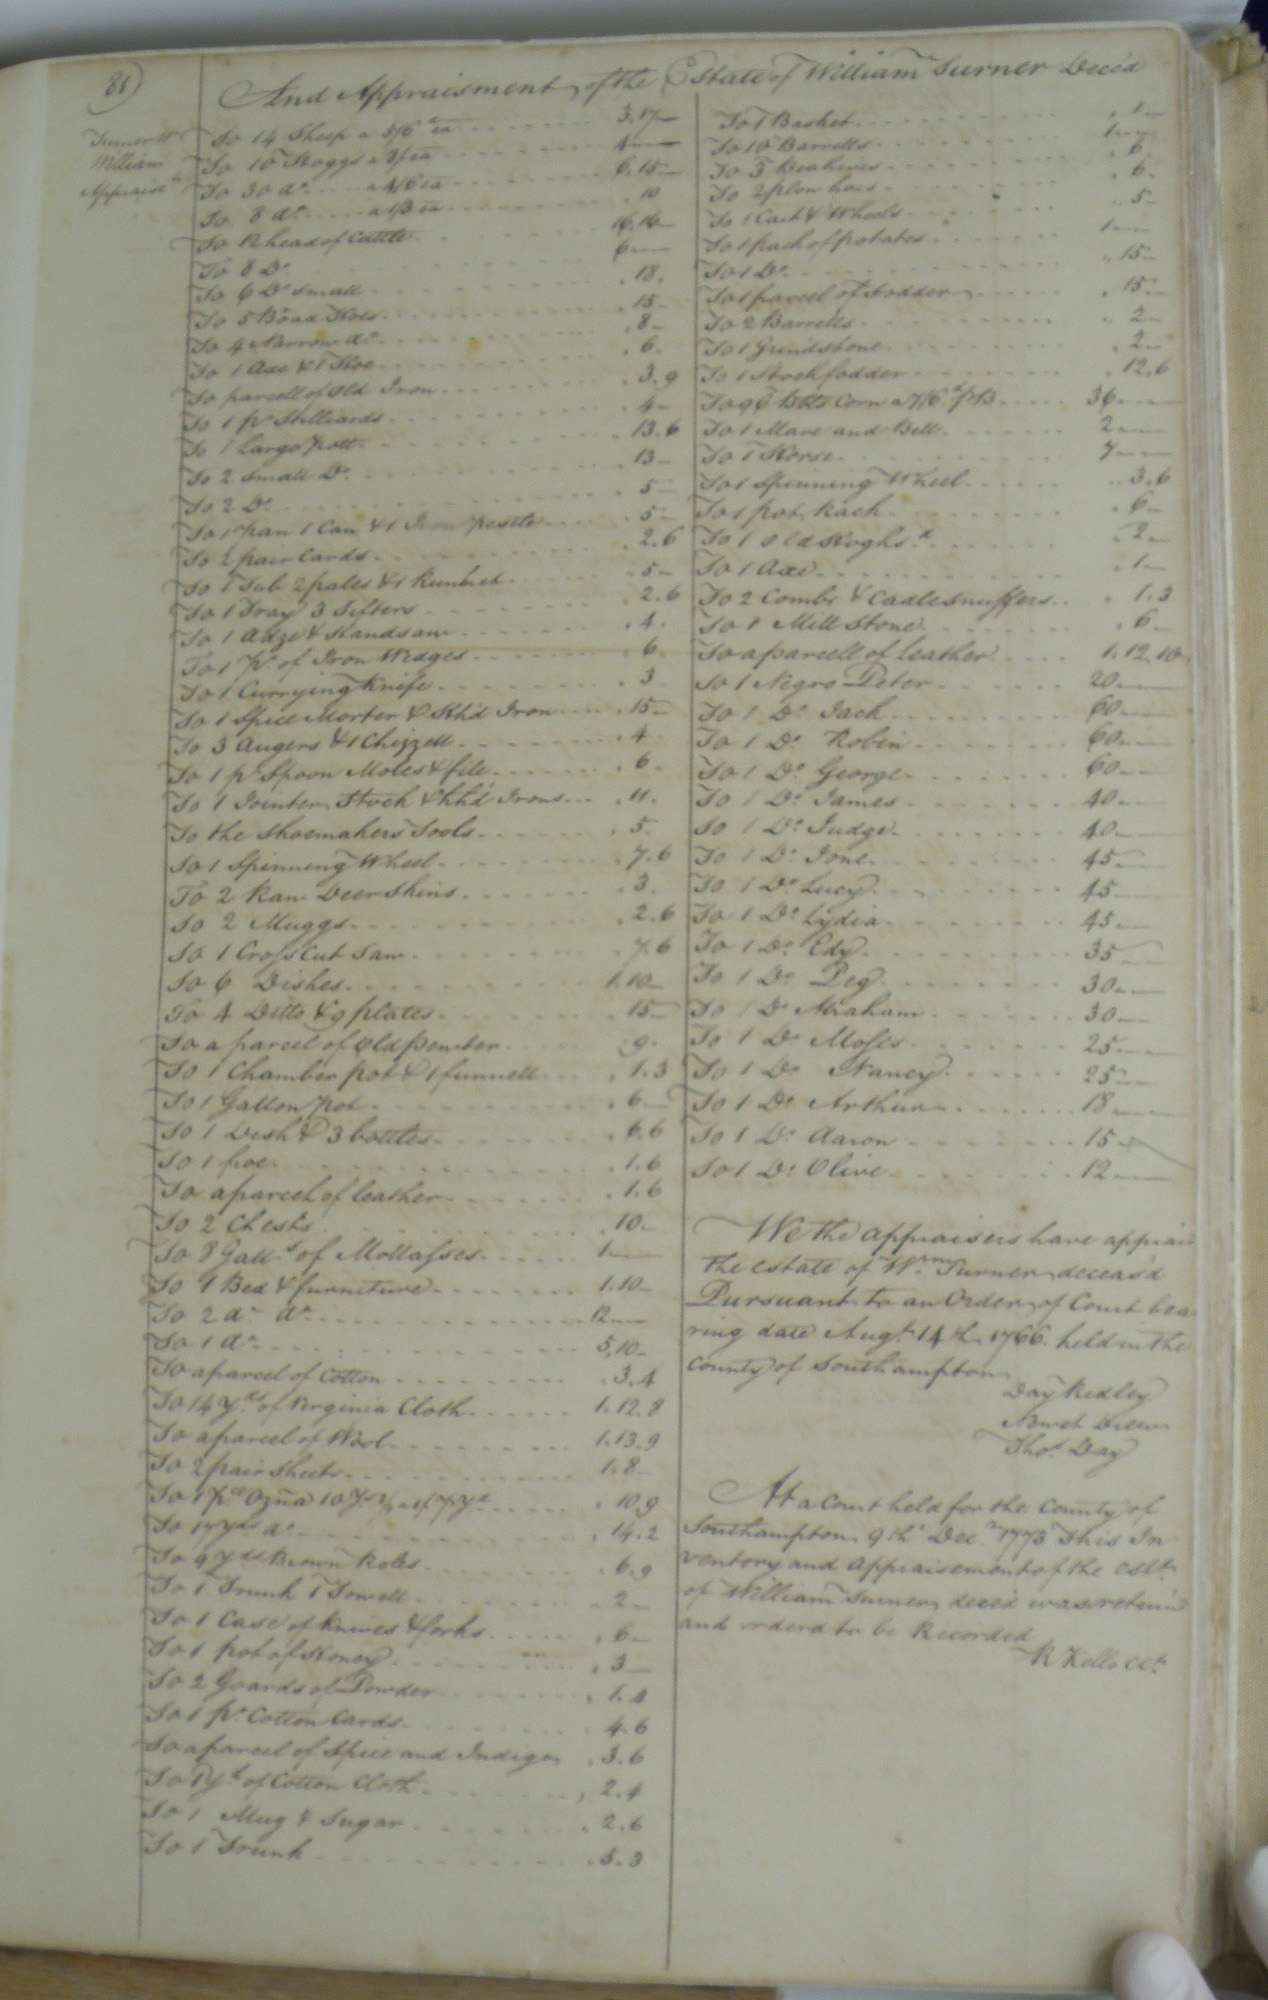 81)
And Appraisment of the Estate of William Turner Deced
Turner
William
Appraismt
To 14 Sheep a 5/6 ea 3.17
To 10 Hoggs a 8/ ea 4
To 30 do a 4/6 ea 6.15
To 8 do a 1/3 ea 10
To 12 head of Cattle 16.16
To 8 Do 6
To 6 Do small 18
To 5 Boad Hoes 15
To 4 Narrow do 8
To 1 Axe & 1 Hoe 6
To parcell of old Iron 3.9
To 1 pr Stilliards 4
To 1 Large pott 13.6
To 2 Small Do 13
To 2 Do 5
To 1 pan 1 Can & 1 Iron pestle 5
To 2 pair Cards 2.6
To 1 Tub 2 pales & 1 Runlet 5
To 1 Tray 3 Sifters 2.6
To 1 Adze & Handsaw 4
To 1 pr of Iron Wedges 6
To 1 Currying Knife 3
To 1 Spice Morter & Hhd Iron 15
To 3 Augers & 1 Chizzell 4
To 1 pr Spoon Moles & file 6
To 1 Jointer Stock & hhd Irons 11
To the Shoemakers Tools 5
To 1 Spinning Wheel 7.6
To 2 Raw Deer Skins 3
To 2 Muggs 2.6
To 1 Cross Cut Saw 7.6
To 6 Dishes 1.10
To 4 Ditto & 9 plates 15
To a parcel of Old pewter 9
To 1 Chamber pot & 1 funnell 1.3
To 1 Gallon pot 6
To 1 Dish & 3 bottles 6.6
To 1 froe 1.6
To a parcel of leather 1.6
To 2 Chests 10
To 8 Galls of Mollasses 1
To 1 Bed & furniture 1.10
To 2 do do 12
To 1 do 5.10
To a parcel of Cotton 3.4
To 14 yds of Virginia Cloth 1.12.8
To a parcel of Wool 1.13.9
To 2 pair Sheets 1.8
To 1 ps Ozna 10 yds 10.9
To 17 yds do 14.2
To 9 yds Brown Roles 6.9
To 1 Trunk 1 Towell 2
To 1 Case of Knives & forks 6
To 1 pot of Honey 3
To 2 Goards of Powder 1.4
To 1 pr Cotton Cards 4.6
To a parcel of Spice and Indigo 3.6
To yd of Cotton Cloth 2.4
To 1 Mug & Sugar 2.6
To 1 Trunk 5.3
To 1 Basket 1
To 10 Barrells 1
To 3 Beahives 6
To 2 plow hoes 6
To 1 Cart & Wheels 5
To 1 pach of potatoes 1
To 1 Do 15
To 1 parcel of Fodder 15
To 2 Barrells 2
To 1 Grindstone 2
To 1 Stack fodder 12.6
To 96 Bbls Corn a 7/6 pB 36
To 1 Mare and Bell 2
To 1 Horse 7
To 1 Spinning Wheel 3.6
To 1 pot Rack 6
To 1 old Hoghsd 2
To 1 Axe 1
To 2 Combs & Cadlesnuffers 1.3
To 1 Mill Stone 6
To a parcell of Leather 1.12.10
To 1 Negro Peter 20
To 1 Do Jack 60
To 1 Do Robin 60
To 1 Do George 60
To 1 Do James 40
To 1 Do Judge 40
To 1 Do Jone 45
To 1 Do Lucy 45
To 1 Do Lydia 45
To 1 Do Edy 35
To 1 Do Peg 30
To 1 Do Abraham 30
To 1 Do Moses 25
To 1 Do Nancy 25
To 1 Do Arthur 18
To 1 Do Aaron 15
To 1 Do Olive 12
We the appraisers have apprais
the estate of Wm Turner deceasd
Pursuant to an Order of Court bea
ring date Augt 14th 1766 held in the
County of Southampton
Day Ridley
Newet Drew
Thos Day
At a Court held for the County of
Southampton 9th Decr 1773 This In
ventory and Appraisement of the estte
of William Turner deced was returnd
and orderd to be Recorded
R Kello CCk